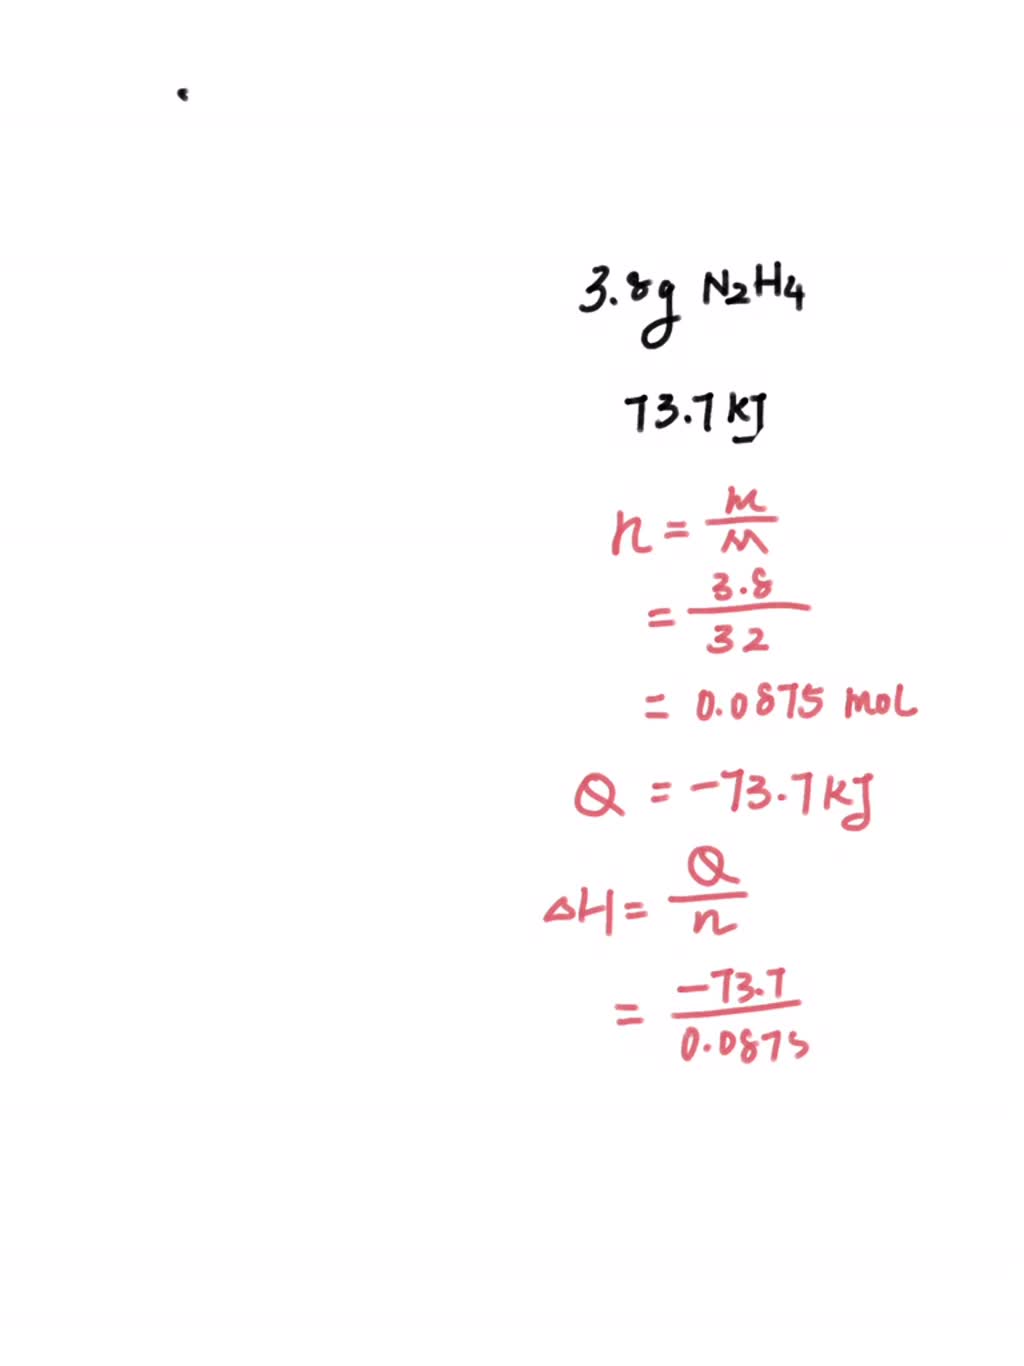 3.8g N2H4
73.7 kJ
n = m/M
= 3.8/32
= 0.0875 mol
Q = -73.7 kJ
ΔH = Q/n
= -73.7/0.0875